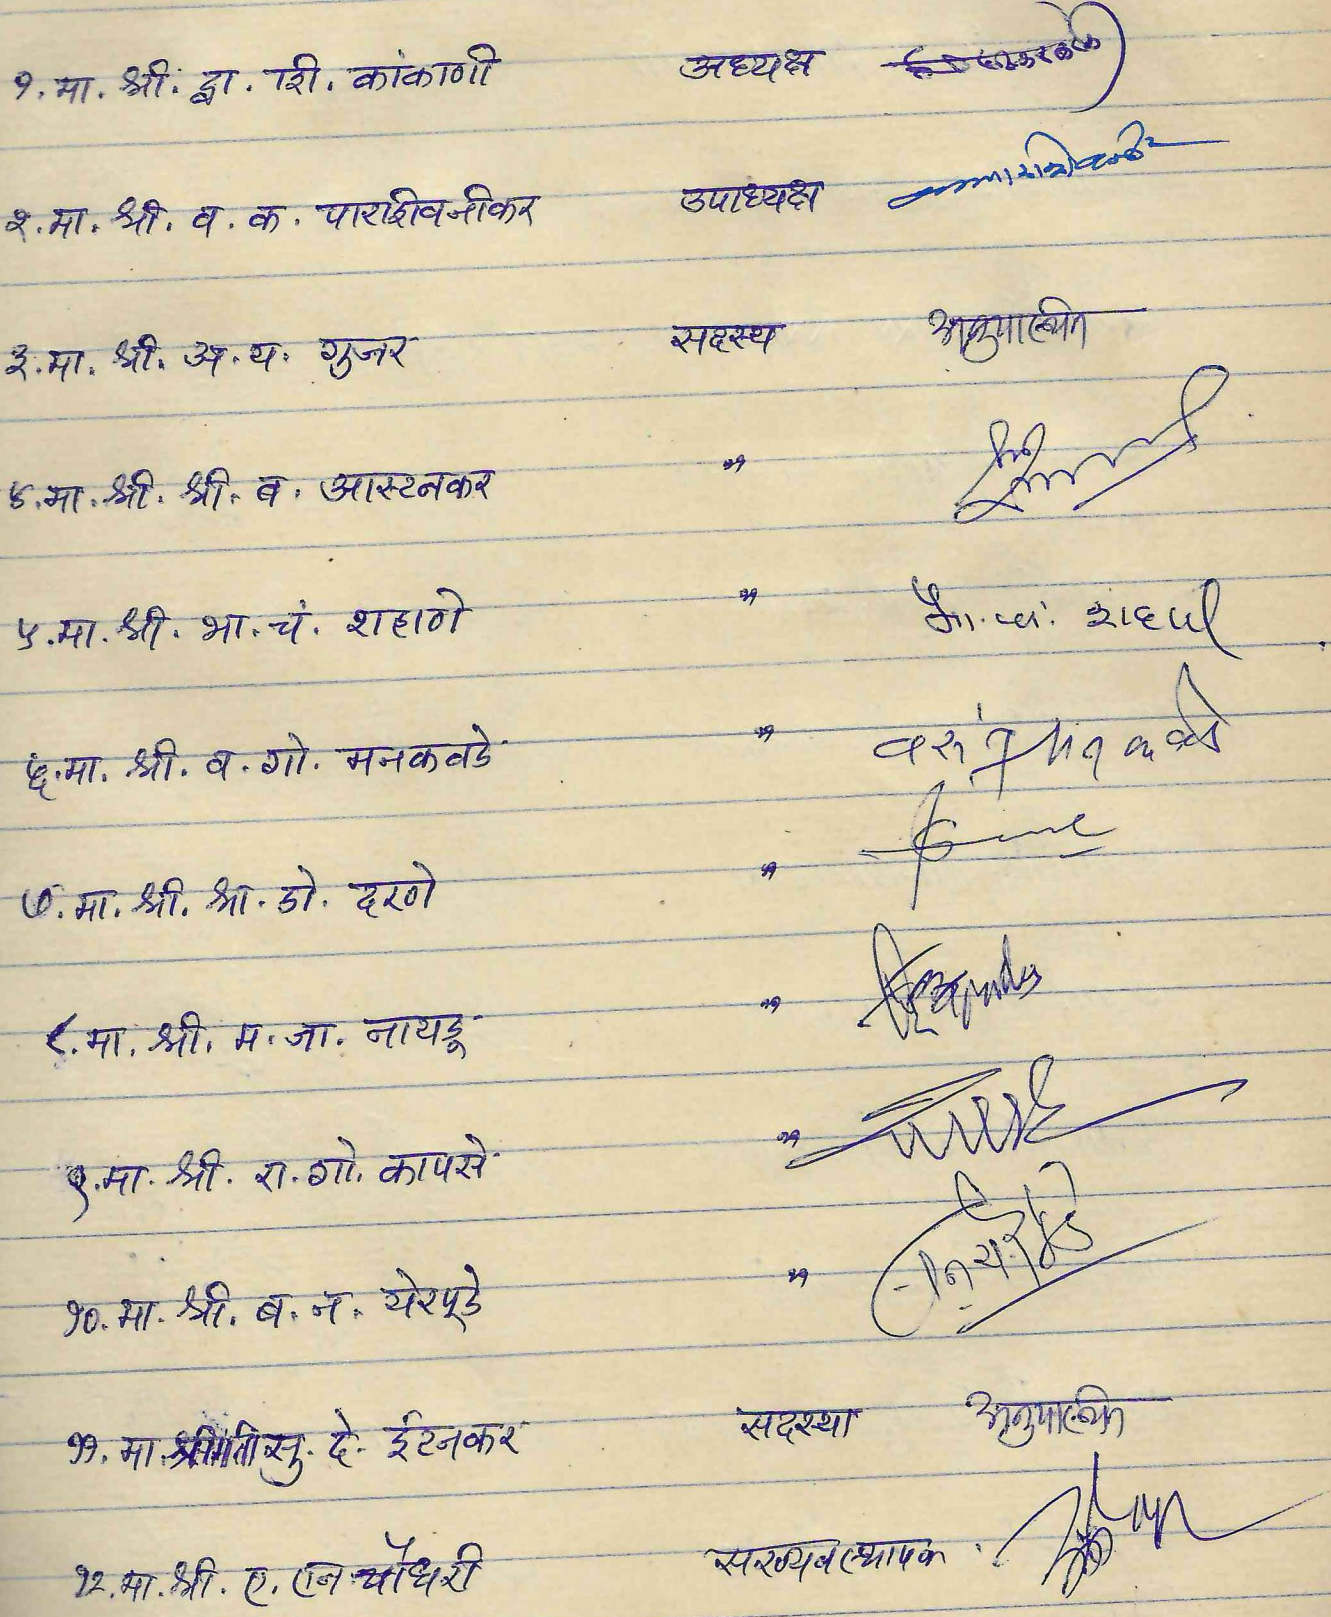 १. मा. श्री. द्वा. गि. कांकाणी अध्यक्ष
२. मा. श्री. व. क. पाराशीवनीकर उपाध्यक्ष
३. मा. श्री. अ. य. गुजर सदस्य अनुपस्थित
४. मा. श्री. श्री. ब. आस्टनकर "
५. मा. श्री. भा. चं. शहाणे " भा. चं. शहाणे
६. मा. श्री. व. गो. मनकवडे "
७. मा. श्री. श्रा. डो. दरणे "
८. मा. श्री. म. जा. नायडू "
९. मा. श्री. रा. गो. कापसे "
१०. मा. श्री. ब. न. येरपूडे "
११. मा. श्रीमती सु. दे. ईटनकर सदस्या अनुपस्थित
१२. मा. श्री. ए. एन. चौधरी सरव्यवस्थापक